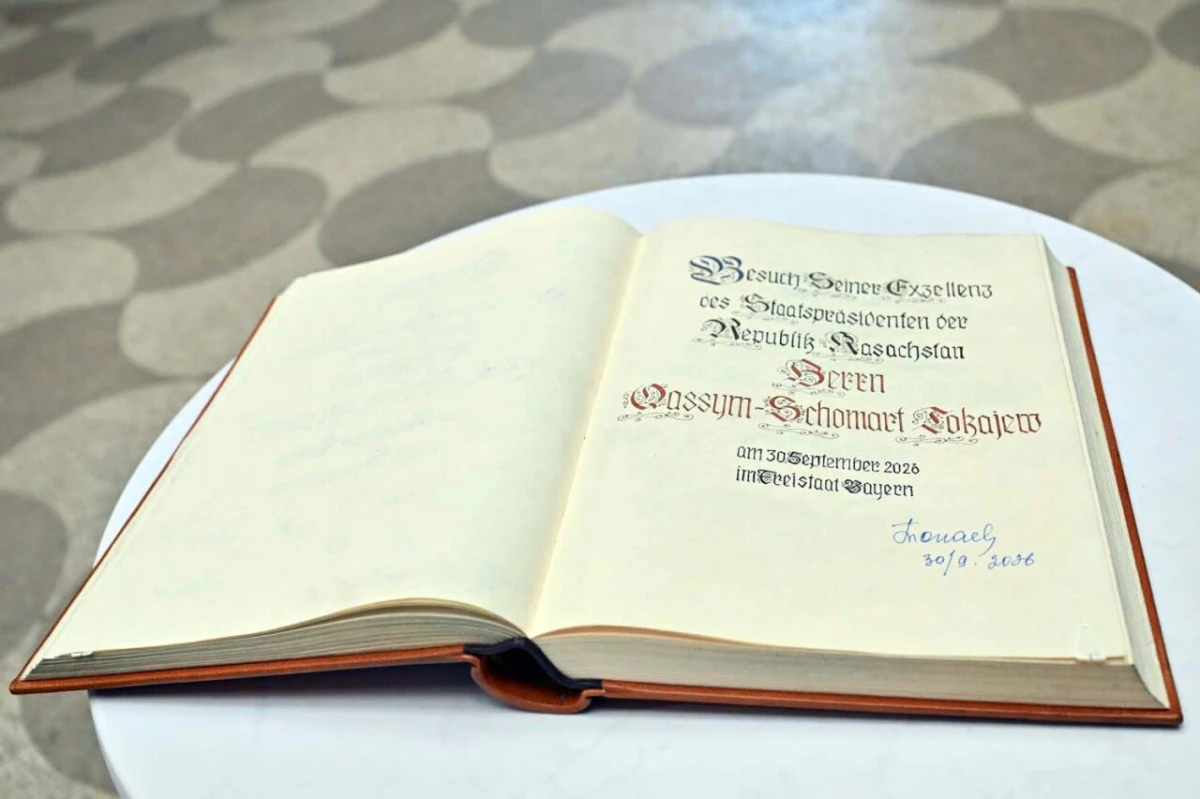 Besuch Seiner Exzellenz
des Staatspräsidenten der
Republik Kasachstan
Herrn
Qassym-Schomart Tokajew
am 30. September 2026
im Freistaat Bayern
30/9. 2026